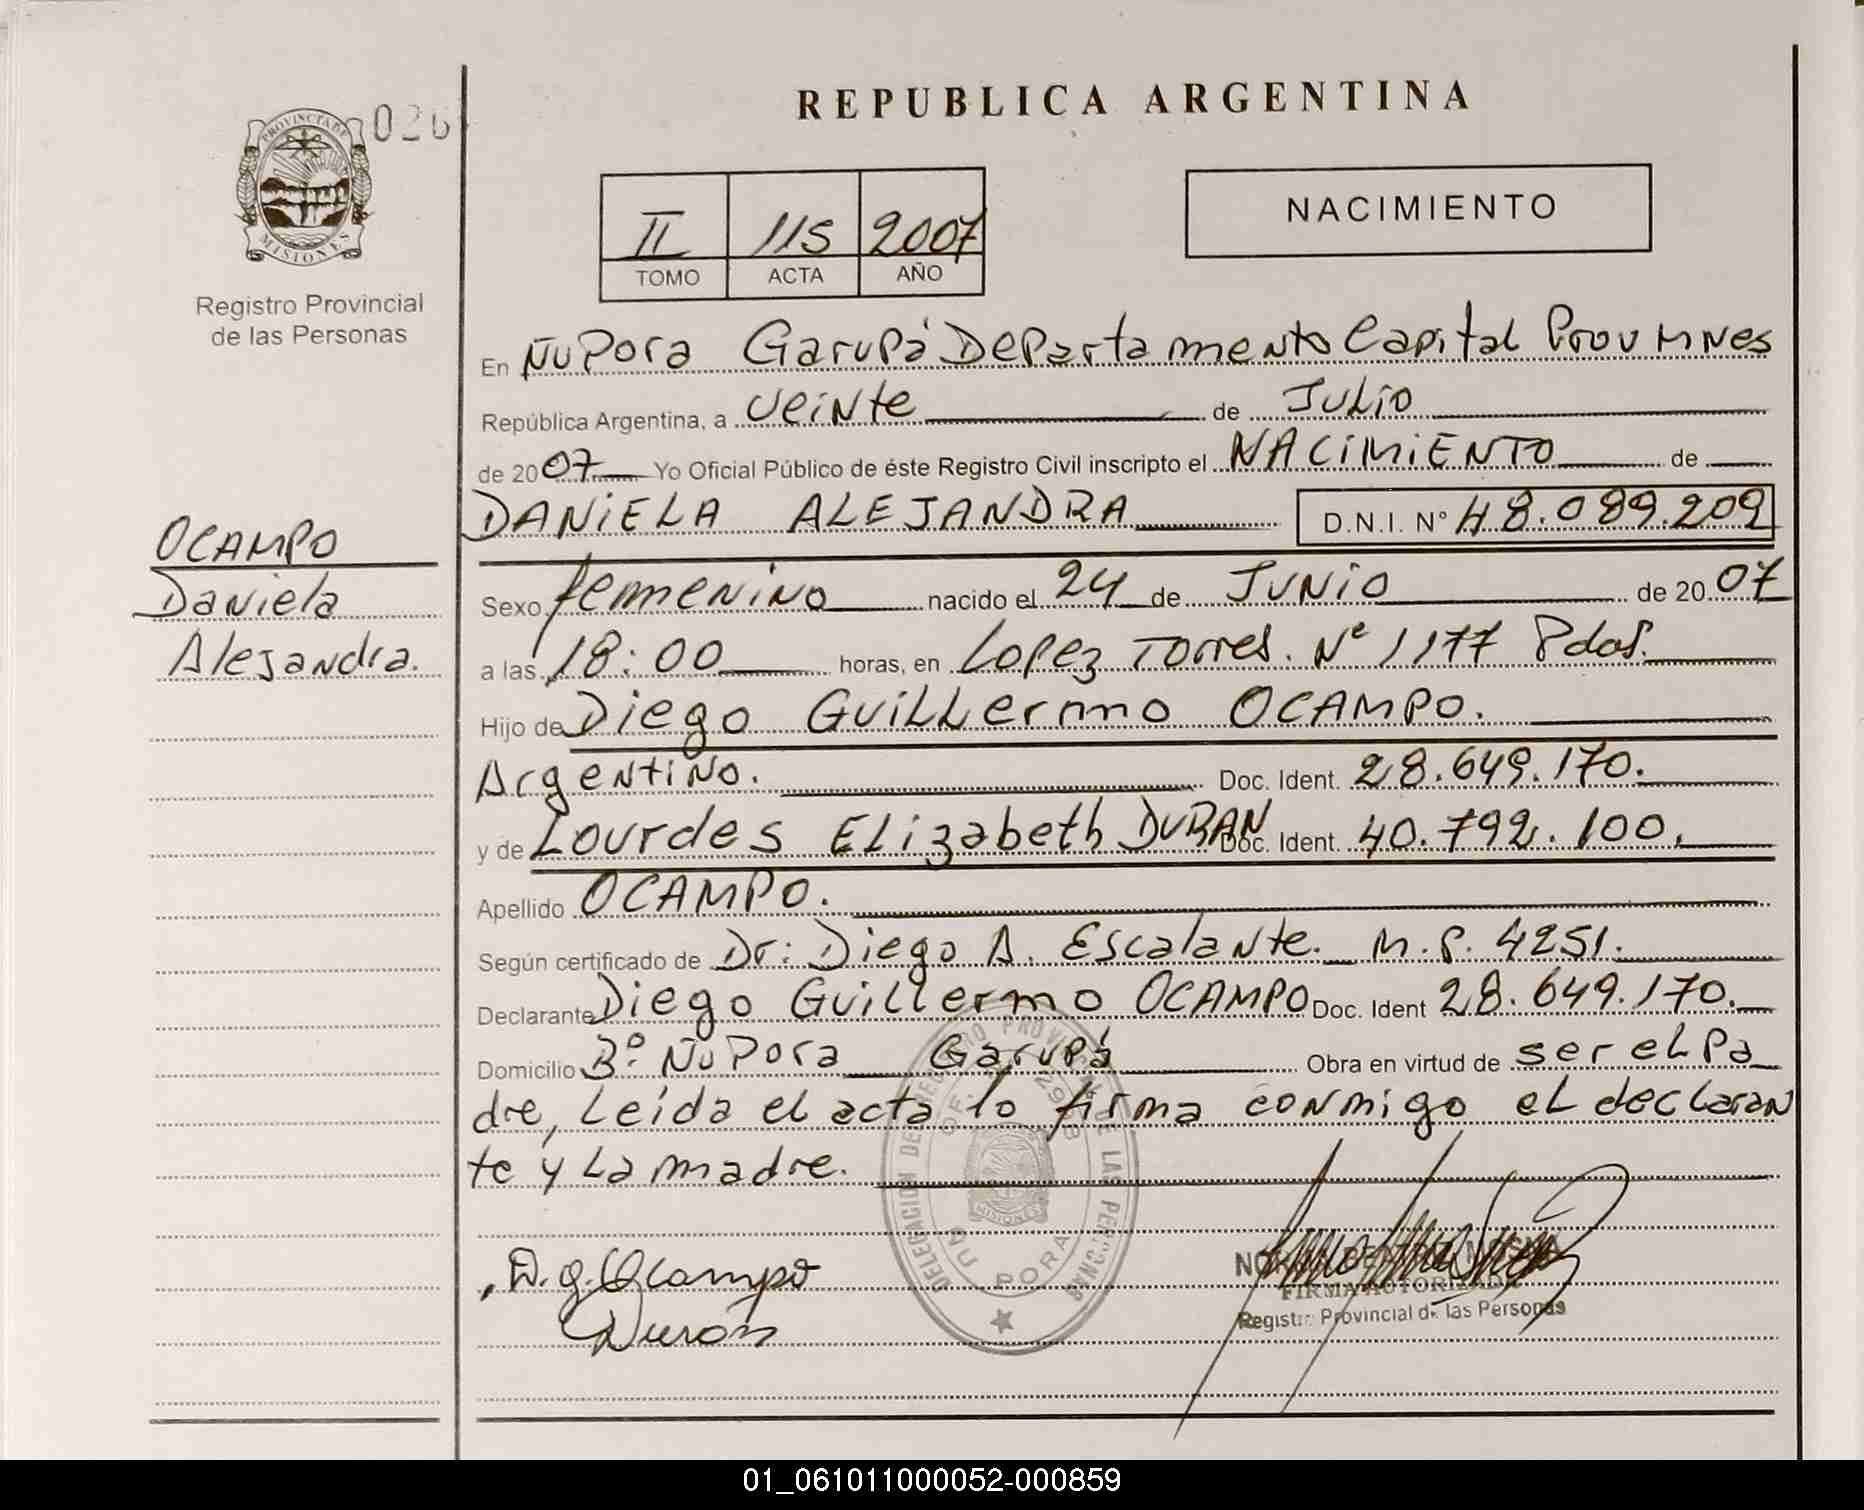 REPUBLICA ARGENTINA
026
PROVINCIA DE
MISIONES
Registro Provincial
de las Personas
II 115 2007
TOMO ACTA AÑO
NACIMIENTO
En Ñu Pora Garupá Departamento Capital Prov Mnes
República Argentina, a veinte de Julio
de 2007 Yo Oficial Público de éste Registro Civil inscripto el NACIMIENTO de
DANIELA ALEJANDRA D.N.I. N° 48.089.209
OCAMPO
Daniela
Alejandra.
Sexo femenino nacido el 24 de JUNIO de 2007
a las 18:00 horas, en Lopez Torres. Nº 1177 Pdas.
Hijo de Diego Guillermo OCAMPO.
Argentino. Doc. Ident. 28.649.170.
y de Lourdes Elizabeth DURAN Doc. Ident. 40.792.100.
Apellido OCAMPO.
Según certificado de Dr: Diego A. Escalante. M.P. 4251.
Declarante Diego Guillermo OCAMPO Doc. Ident 28.649.170.
Domicilio Bº Ñu Pora Garupá Obra en virtud de ser el pa
dre, Leída el acta lo firma conmigo el declaran
te y la madre.
DELEGACION DEL REGISTRO PROVINCIAL DE LAS PERSONAS
ÑU PORA
MISIONES
D.g. Ocampo
Duran
FIRMA AUTORIZADA
Registro Provincial de las Personas
01_061011000052-000859